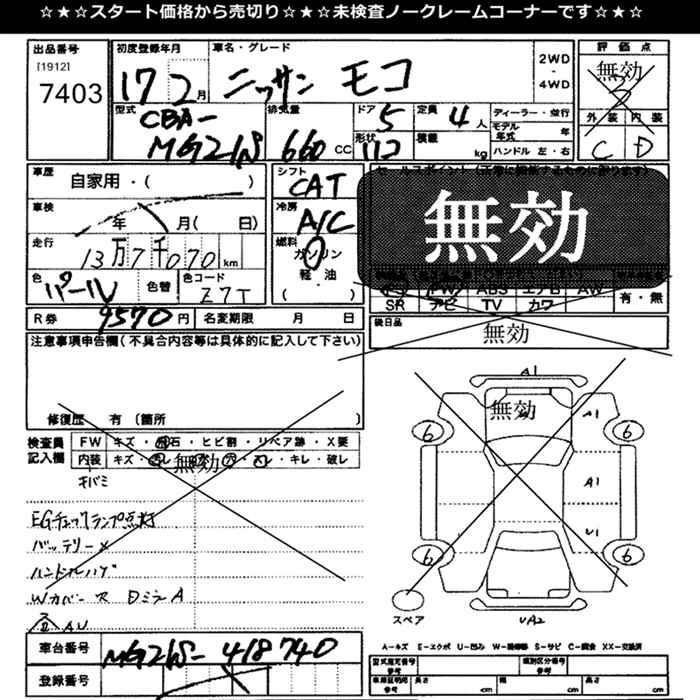 ☆★☆スタート価格から売切り☆★☆未検査ノークレームコーナーです☆★☆
出品番号
[1912]
7403
初度登録年月
17 2月
車名・グレード
ニッサン モコ
2WD
・
4WD
評価点
無効
外装 内装
C D
型式
CBA-
MG21S
排気量
660 CC
ドア
5
形状
定員
4人
積載
kg
ディーラー・並行
モデル年式 年
ハンドル 左・右
車歴
自家用・( )
車検
年 月( 日)
走行
13万7千070km
色
パール
色替
色コード
Z7T
シフト
CAT
冷房
A/C
燃料
ガソリン
軽・油
( )
無効
ABS エアロ AW
SR ナビ TV カワ
有・無
R券
9570円
名変期限 月 日
後日品
無効
注意事項申告欄(不具合内容等は具体的に記入して下さい)
修復歴 有 (箇所 )
検査員
記入欄
FW キズ・飛石・ヒビ割・リペア跡・X要
内装 キズ・
無効
・キレ・破レ
キバミ
EGチェックランプ点灯
バッテリー×
ハンドルハゲ
Wカバー ス DミラーA
AU
車台番号
MG21S-418740
登録番号
A1
無効
A1
6
6
A1
U1
6
6
スペア
UA2
A-キズ E-エクボ U-凹み S-サビ C-腐食 XX-交換済
型式指定番号
参考
類別区分番号
参考
車庫証明用
参考
長さ
cm
幅
cm
高さ
cm